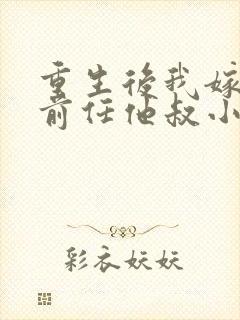 重生後我嫁
前任他叔小
彩衣妖妖